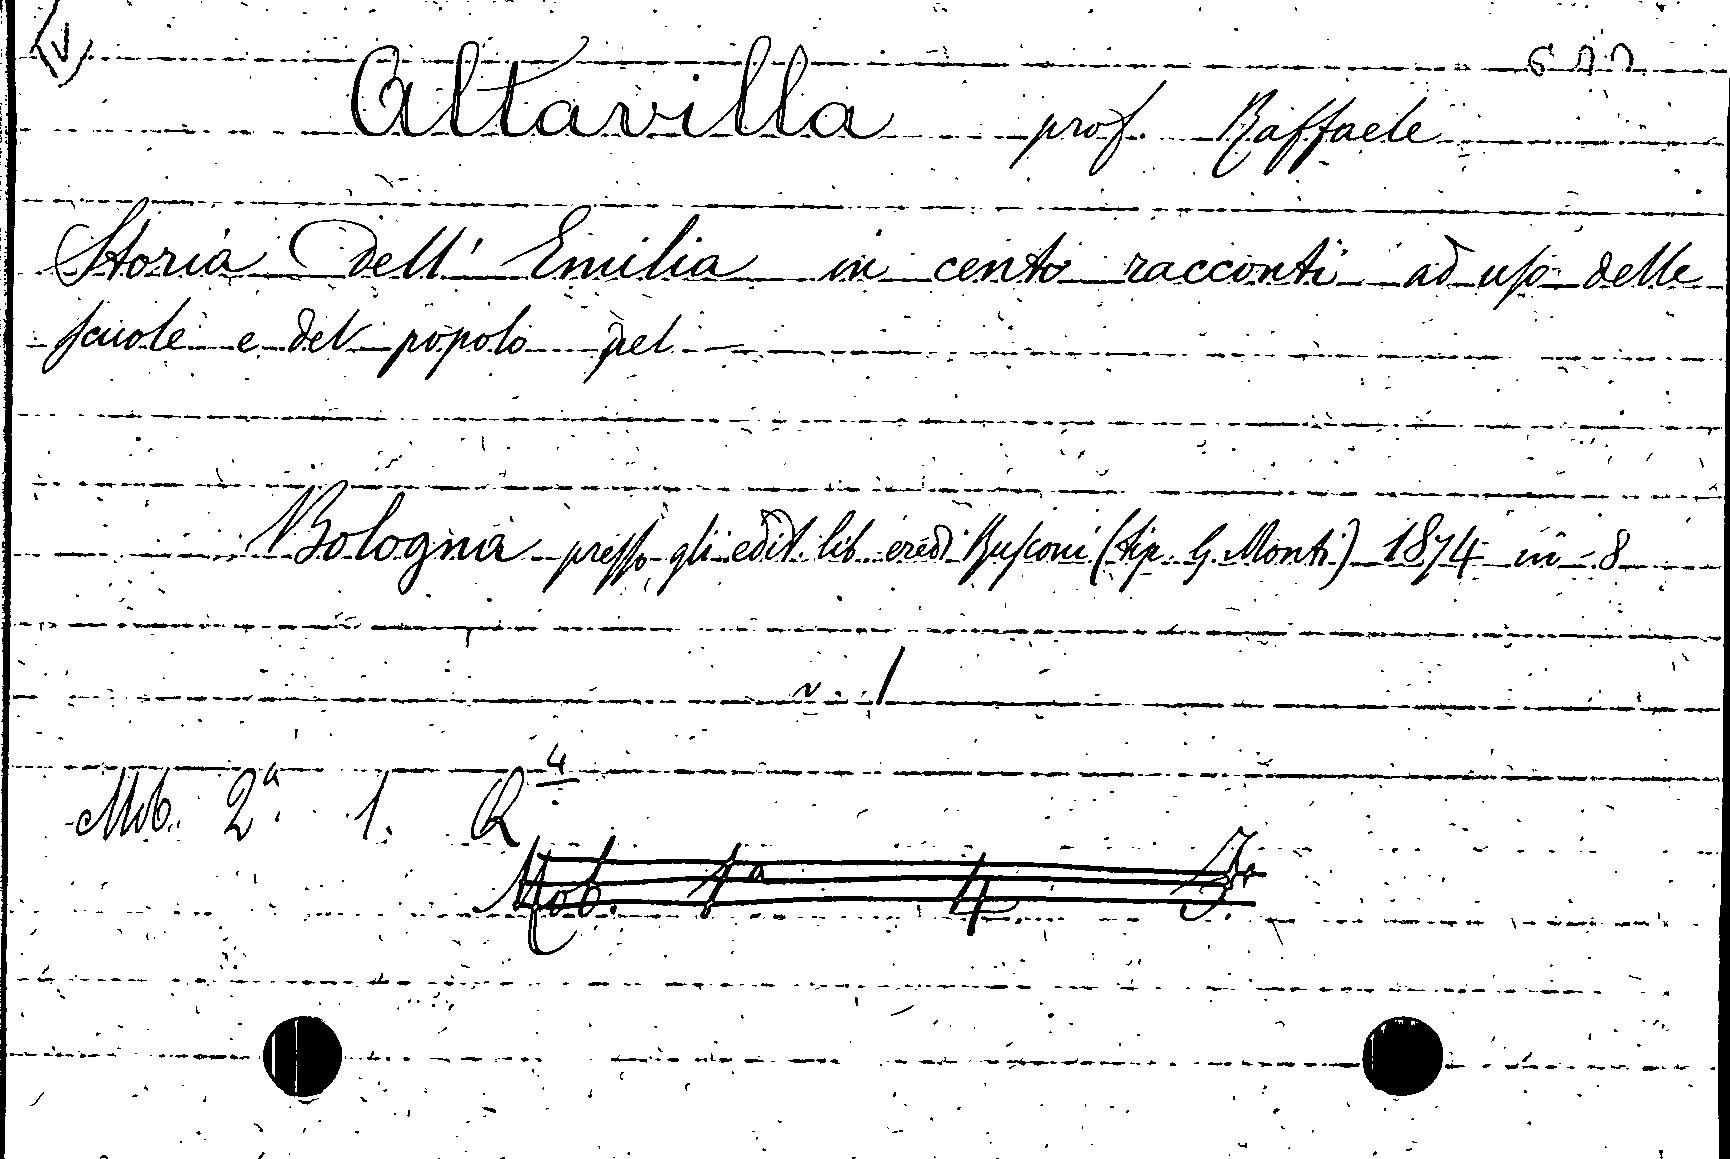 Altavilla prof. Raffaele
Storia dell' Emilia in cento racconti ad uso delle
scuole e del popolo pel —
Bologna presso gli edit. lib. eredi Busconi (tip. G. Monti) 1874 in-8
v. 1
Mob. 2ª. 1. Q 4
Mob. 1ª 4.